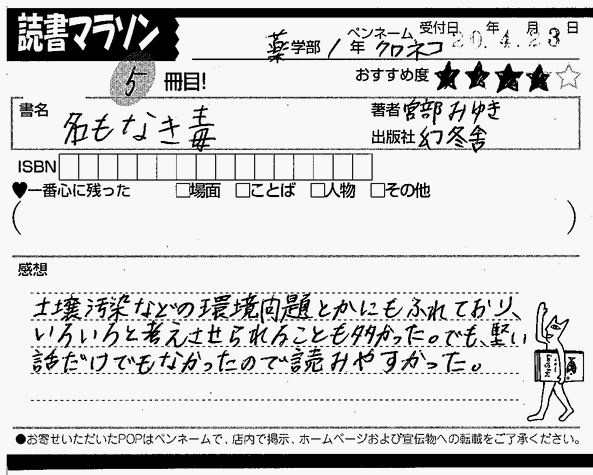 読書マラソン
薬学部 1年 ペンネーム クロネコ 受付日 20年4月23日
5冊目!
おすすめ度 ★★★★☆
書名 名もなき毒
著者 宮部みゆき
出版社 幻冬舎
ISBN
♥一番心に残った □場面 □ことば □人物 □その他
( )
感想
土壌汚染などの環境問題とかにもふれており、
いろいろと考えさせられることも多かった。でも、堅い
話だけでもなかったので読みやすかった。
●お寄せいただいたPOPはペンネームで、店内で掲示、ホームページおよび宣伝物への転載をご了承ください。